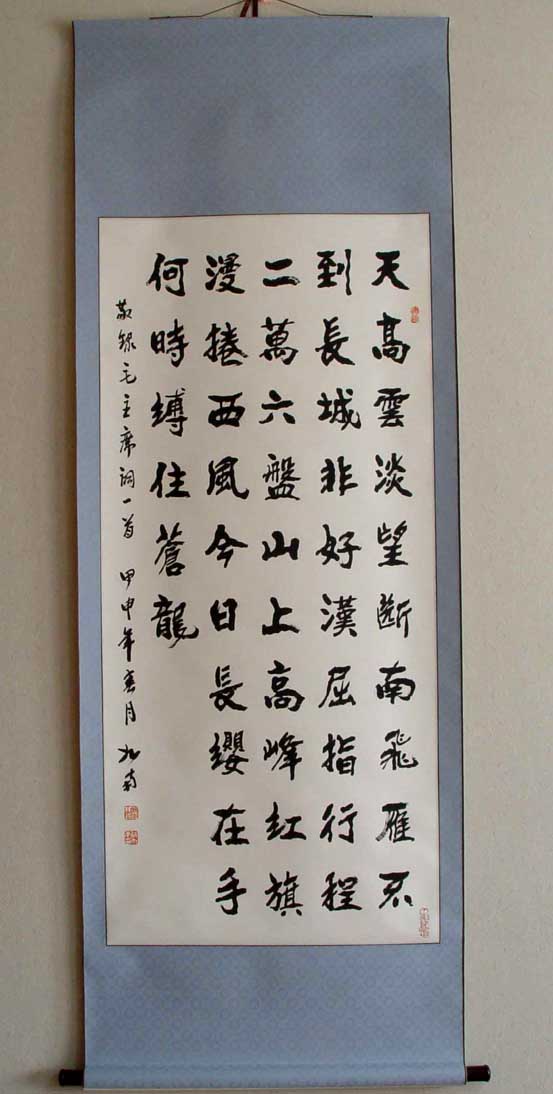 天高雲淡望斷南飛雁不
到長城非好漢屈指行程
二萬六盤山上高峰紅旗
漫捲西風今日長纓在手
何時縛住蒼龍
敬錄毛主席詞一首 甲申年春月